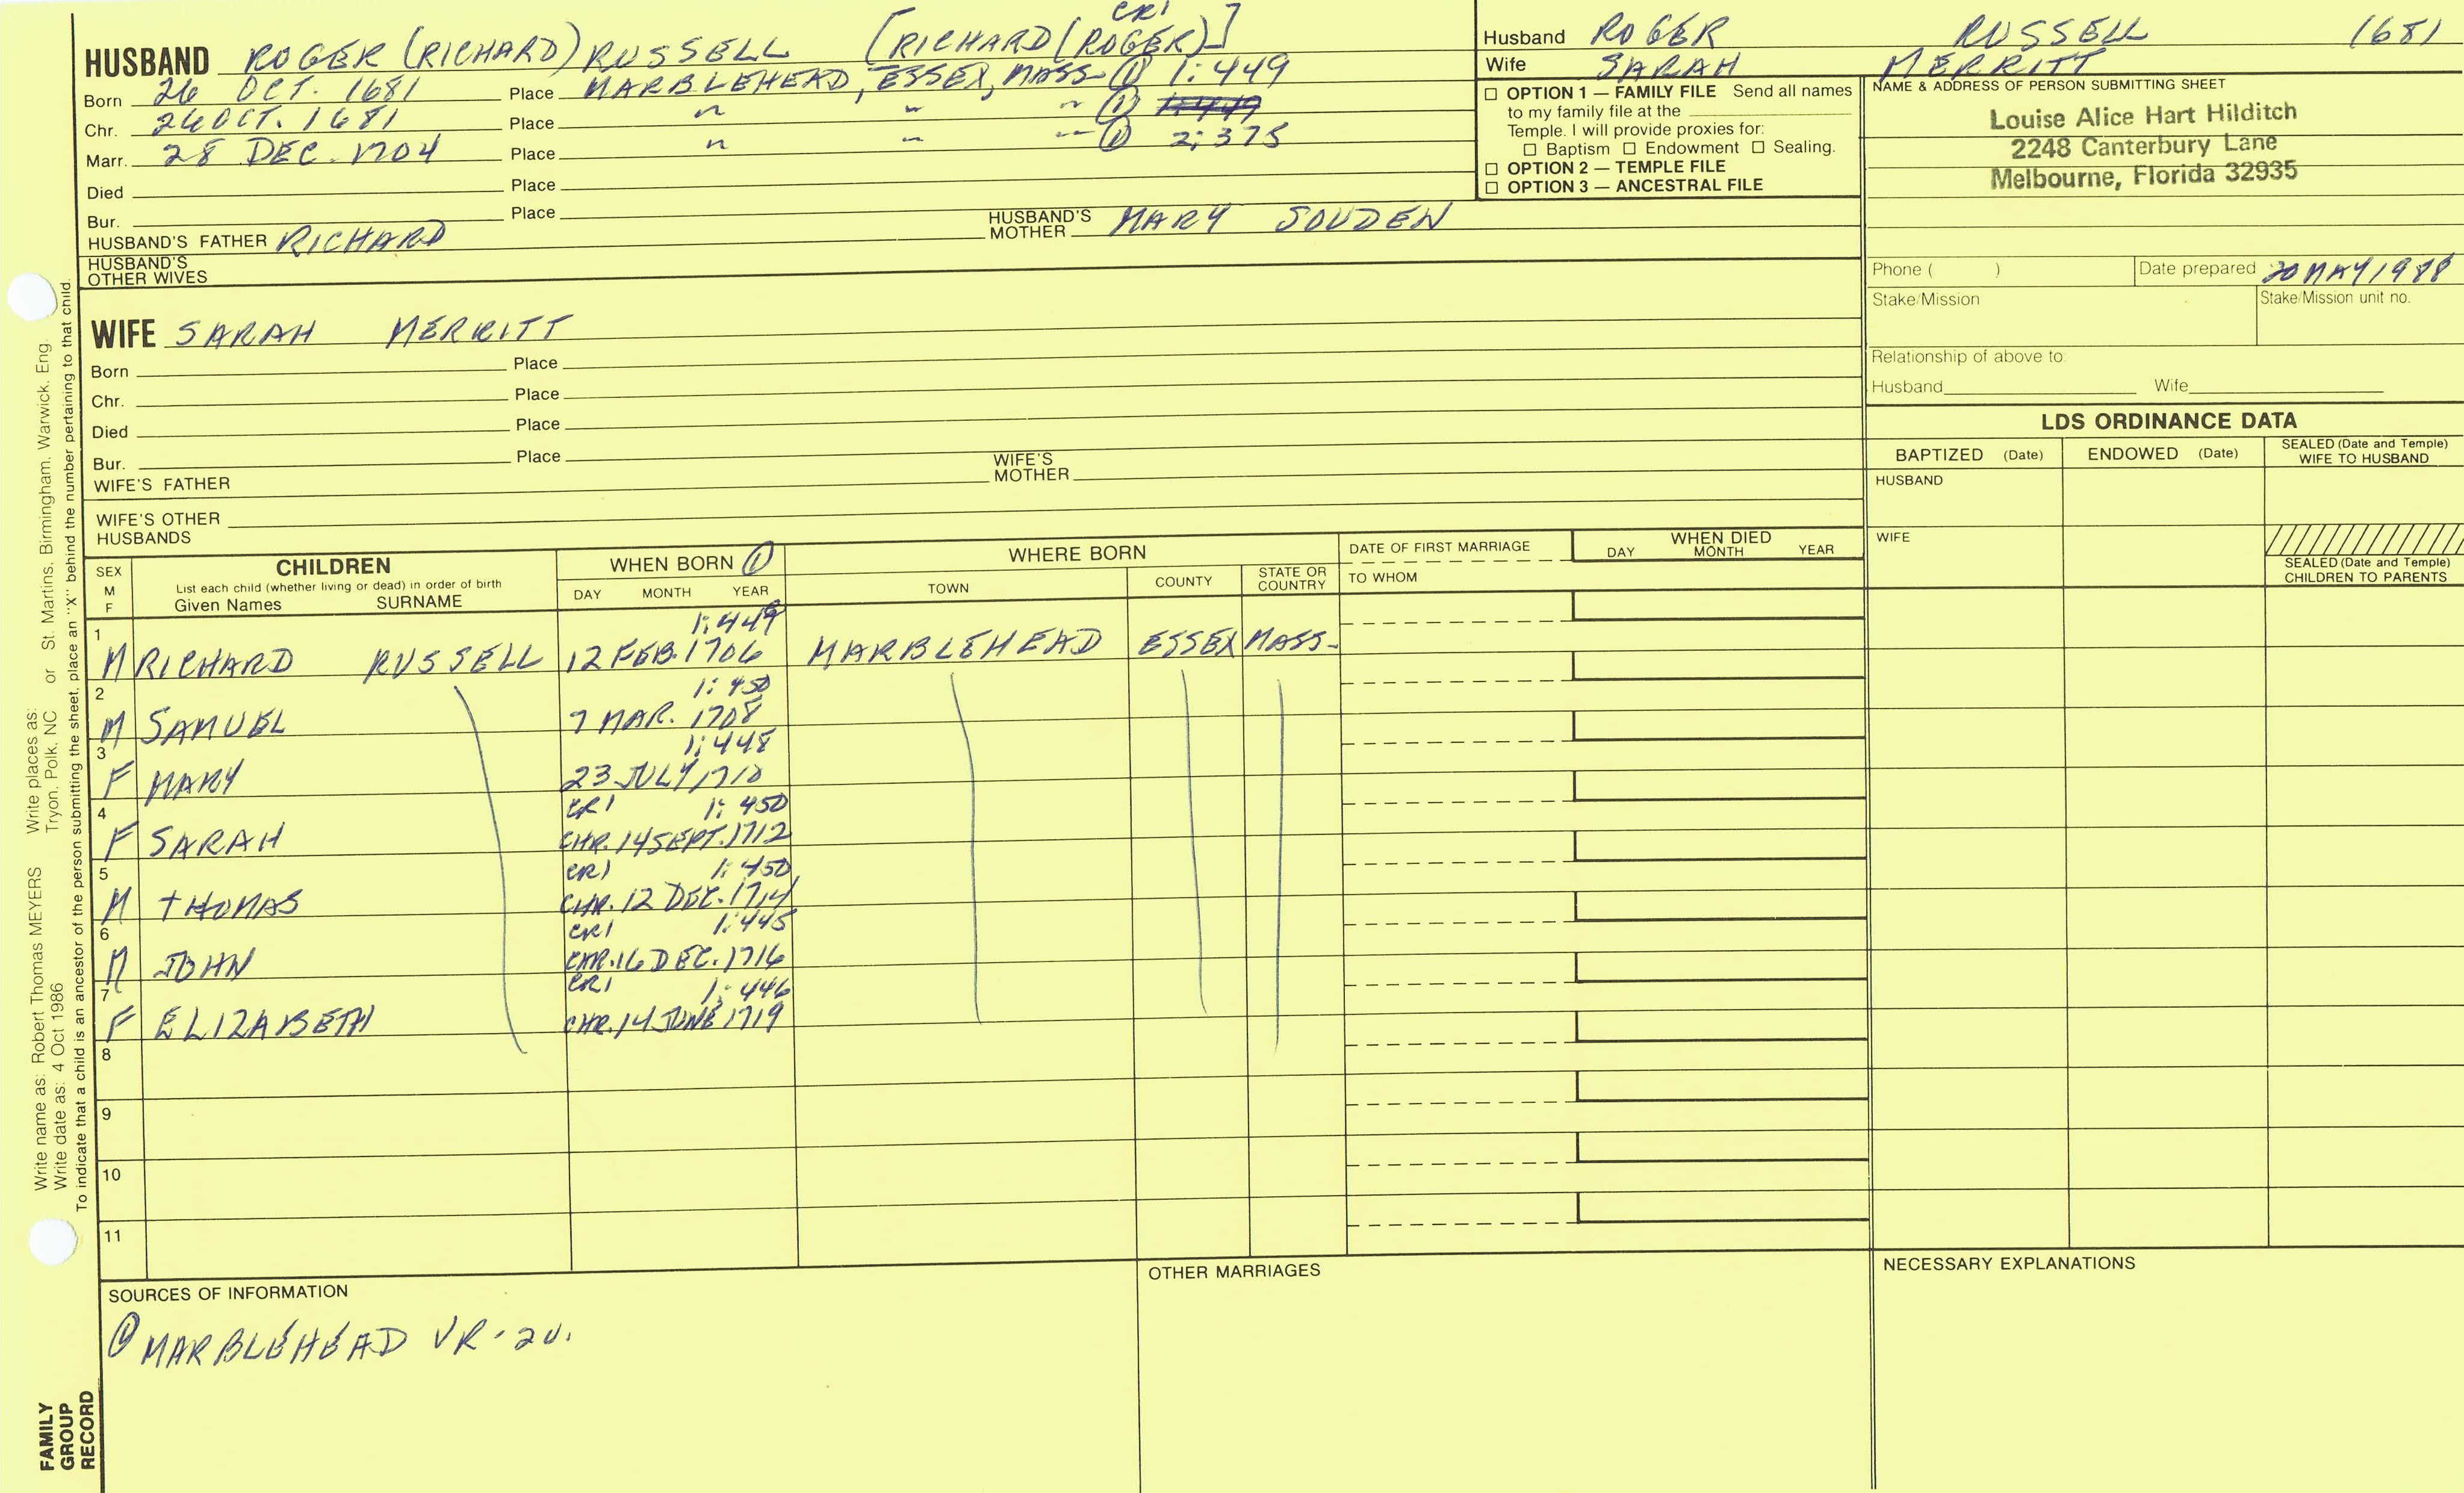 CRI
HUSBAND ROGER (RICHARD) RUSSELL [RICHARD (ROGER)]
Born 26 OCT. 1681 Place MARBLEHEAD, ESSEX, MASS ① 1:449
Chr. 26 OCT. 1681 Place " " " ① 1:449
Marr. 28 DEC. 1704 Place " " " ① 2:375
Died Place
Bur. Place
HUSBAND'S FATHER RICHARD HUSBAND'S MOTHER MARY SOUDEN
HUSBAND'S OTHER WIVES
WIFE SARAH MERRITT
Born Place
Chr. Place
Died Place
Bur. Place
WIFE'S FATHER WIFE'S MOTHER
WIFE'S OTHER HUSBANDS
Husband ROGER RUSSELL 1681
Wife SARAH MERRITT
☐ OPTION 1 — FAMILY FILE Send all names
to my family file at the
Temple. I will provide proxies for:
☐ Baptism ☐ Endowment ☐ Sealing.
☐ OPTION 2 — TEMPLE FILE
☐ OPTION 3 — ANCESTRAL FILE
NAME & ADDRESS OF PERSON SUBMITTING SHEET
Louise Alice Hart Hilditch
2248 Canterbury Lane
Melbourne, Florida 32935
Phone ( ) Date prepared 20 MAY 1988
Stake/Mission Stake/Mission unit no.
Relationship of above to:
Husband Wife
LDS ORDINANCE DATA
BAPTIZED (Date) ENDOWED (Date) SEALED (Date and Temple) WIFE TO HUSBAND
HUSBAND
WIFE
SEALED (Date and Temple) CHILDREN TO PARENTS
SEX M F
CHILDREN
List each child (whether living or dead) in order of birth
Given Names SURNAME
WHEN BORN ①
DAY MONTH YEAR
WHERE BORN
TOWN COUNTY STATE OR COUNTRY
DATE OF FIRST MARRIAGE
TO WHOM
WHEN DIED
DAY MONTH YEAR
1 1:449
M RICHARD RUSSELL 12 FEB. 1706 MARBLEHEAD ESSEX MASS-
2 1:450
M SAMUEL 7 MAR. 1708
3 1:448
F MARY 23 JULY 1710
4 CRI 1:450
F SARAH CHR. 14 SEPT. 1712
5 CRI 1:450
M THOMAS CHR. 12 DEC. 1714
6 CRI 1:445
M JOHN CHR. 16 DEC. 1716
7 CRI 1:446
F ELIZABETH CHR. 14 JUNE 1719
8
9
10
11
SOURCES OF INFORMATION
① MARBLEHEAD VR-2V.
OTHER MARRIAGES
NECESSARY EXPLANATIONS
Write name as: Robert Thomas MEYERS Write places as: Tryon, Polk, NC or St. Martins, Birmingham, Warwick, Eng.
Write date as: 4 Oct 1986
To indicate that a child is an ancestor of the person submitting the sheet, place an "X" behind the number pertaining to that child.
FAMILY
GROUP
RECORD